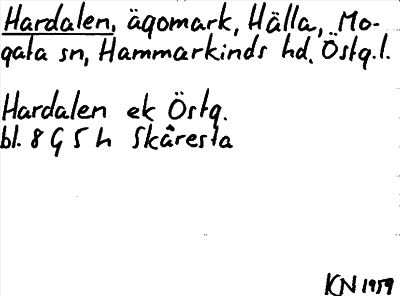 Hardalen, ägomark, Hälla, Mo-
gata sn, Hammarkinds hd, Östg.l.
Hardalen ek Östg.
bl. 8 G 5 h Skåresta
KN 1959